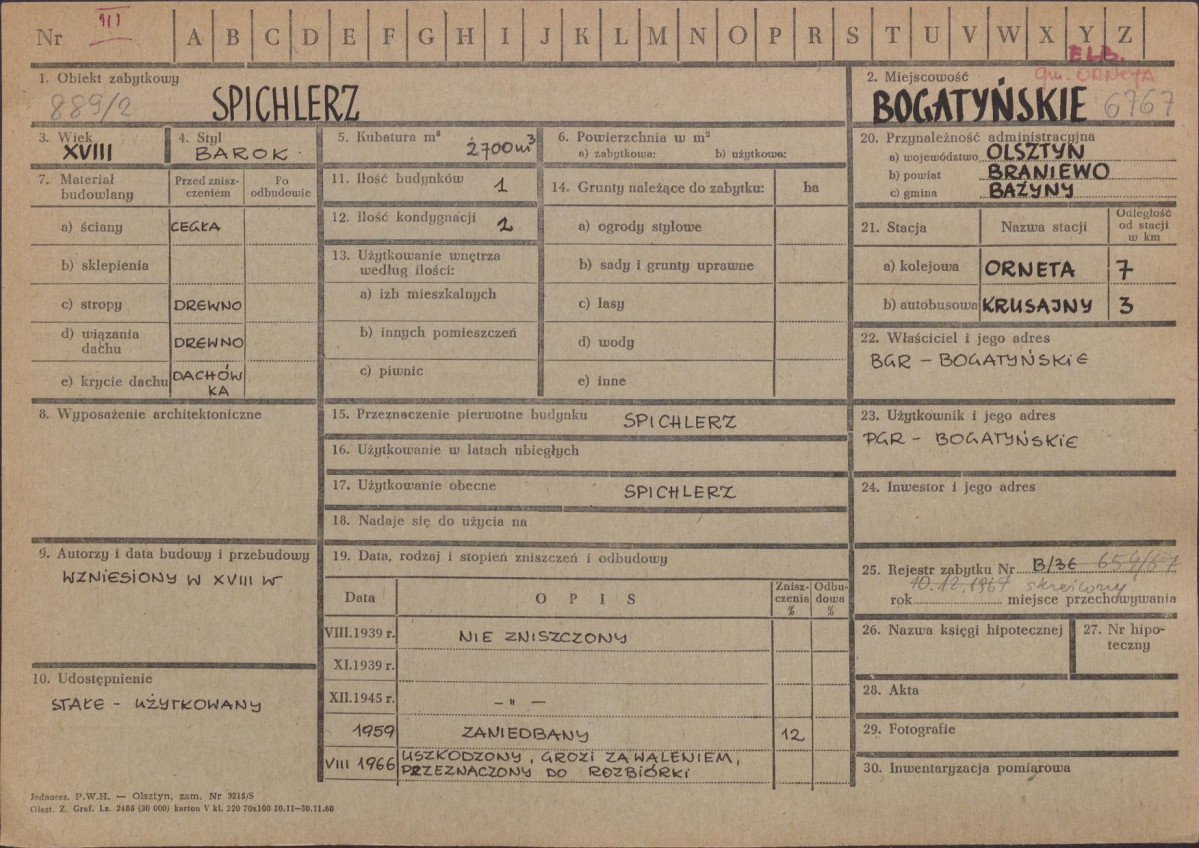 Nr III A B C D E F G H I J K L M N O P R S T U V W X Y Z
ELB.
gm. ORNETA
1. Obiekt zabytkowy
889/2 SPICHLERZ
2. Miejscowość
BOGATYŃSKIE 6767
3. Wiek
XVIII
4. Styl
BAROK
5. Kubatura m³
2700 m³
6. Powierzchnia w m²
a) zabytkowa: b) użytkowa:
7. Materiał budowlany
Przed znisz-
czeniem
Po
odbudowie
a) ściany CEGŁA
b) sklepienia
c) stropy DREWNO
d) wiązania
dachu DREWNO
e) krycie dachu DACHÓW
KA
11. Ilość budynków 1
12. Ilość kondygnacji 2
13. Użytkowanie wnętrza
według ilości:
a) izb mieszkalnych
b) innych pomieszczeń
c) piwnic
14. Grunty należące do zabytku: ha
a) ogrody stylowe
b) sady i grunty uprawne
c) lasy
d) wody
e) inne
20. Przynależność administracyjna
a) województwo OLSZTYN
b) powiat BRANIEWO
c) gmina BAŻYNY
21. Stacja Nazwa stacji
Odległość
od stacji
w km
a) kolejowa ORNETA 7
b) autobusowa KRUSAJNY 3
22. Właściciel i jego adres
BGR - BOGATYŃSKIE
8. Wyposażenie architektoniczne
15. Przeznaczenie pierwotne budynku SPICHLERZ
16. Użytkowanie w latach ubiegłych
17. Użytkowanie obecne SPICHLERZ
18. Nadaje się do użycia na
23. Użytkownik i jego adres
PGR - BOGATYŃSKIE
24. Inwestor i jego adres
9. Autorzy i data budowy i przebudowy
WZNIESIONY W XVIII W
10. Udostępnienie
STAŁE - UŻYTKOWANY
19. Data, rodzaj i stopień zniszczeń i odbudowy
Data OPIS
Znisz-
czenia
%
Odbu-
dowa
%
VIII.1939 r. NIE ZNISZCZONY
XI.1939 r.
XII.1945 r. - " -
1959 ZANIEDBANY 12
VIII 1966 USZKODZONY, GROZI ZAWALENIEM,
PRZEZNACZONY DO ROZBIÓRKI
25. Rejestr zabytku Nr B/3E 659/67
10.12.1967 skreślony
rok miejsce przechowywania
26. Nazwa księgi hipotecznej
27. Nr hipo-
teczny
28. Akta
29. Fotografie
30. Inwentaryzacja pomiarowa
Jednoraz. P.W.H. — Olsztyn, zam. Nr 3215/S
Olszt. Z. Graf. Lz. 2485 (30 000) karton V kl. 220 70x100 10.11—30.11.60